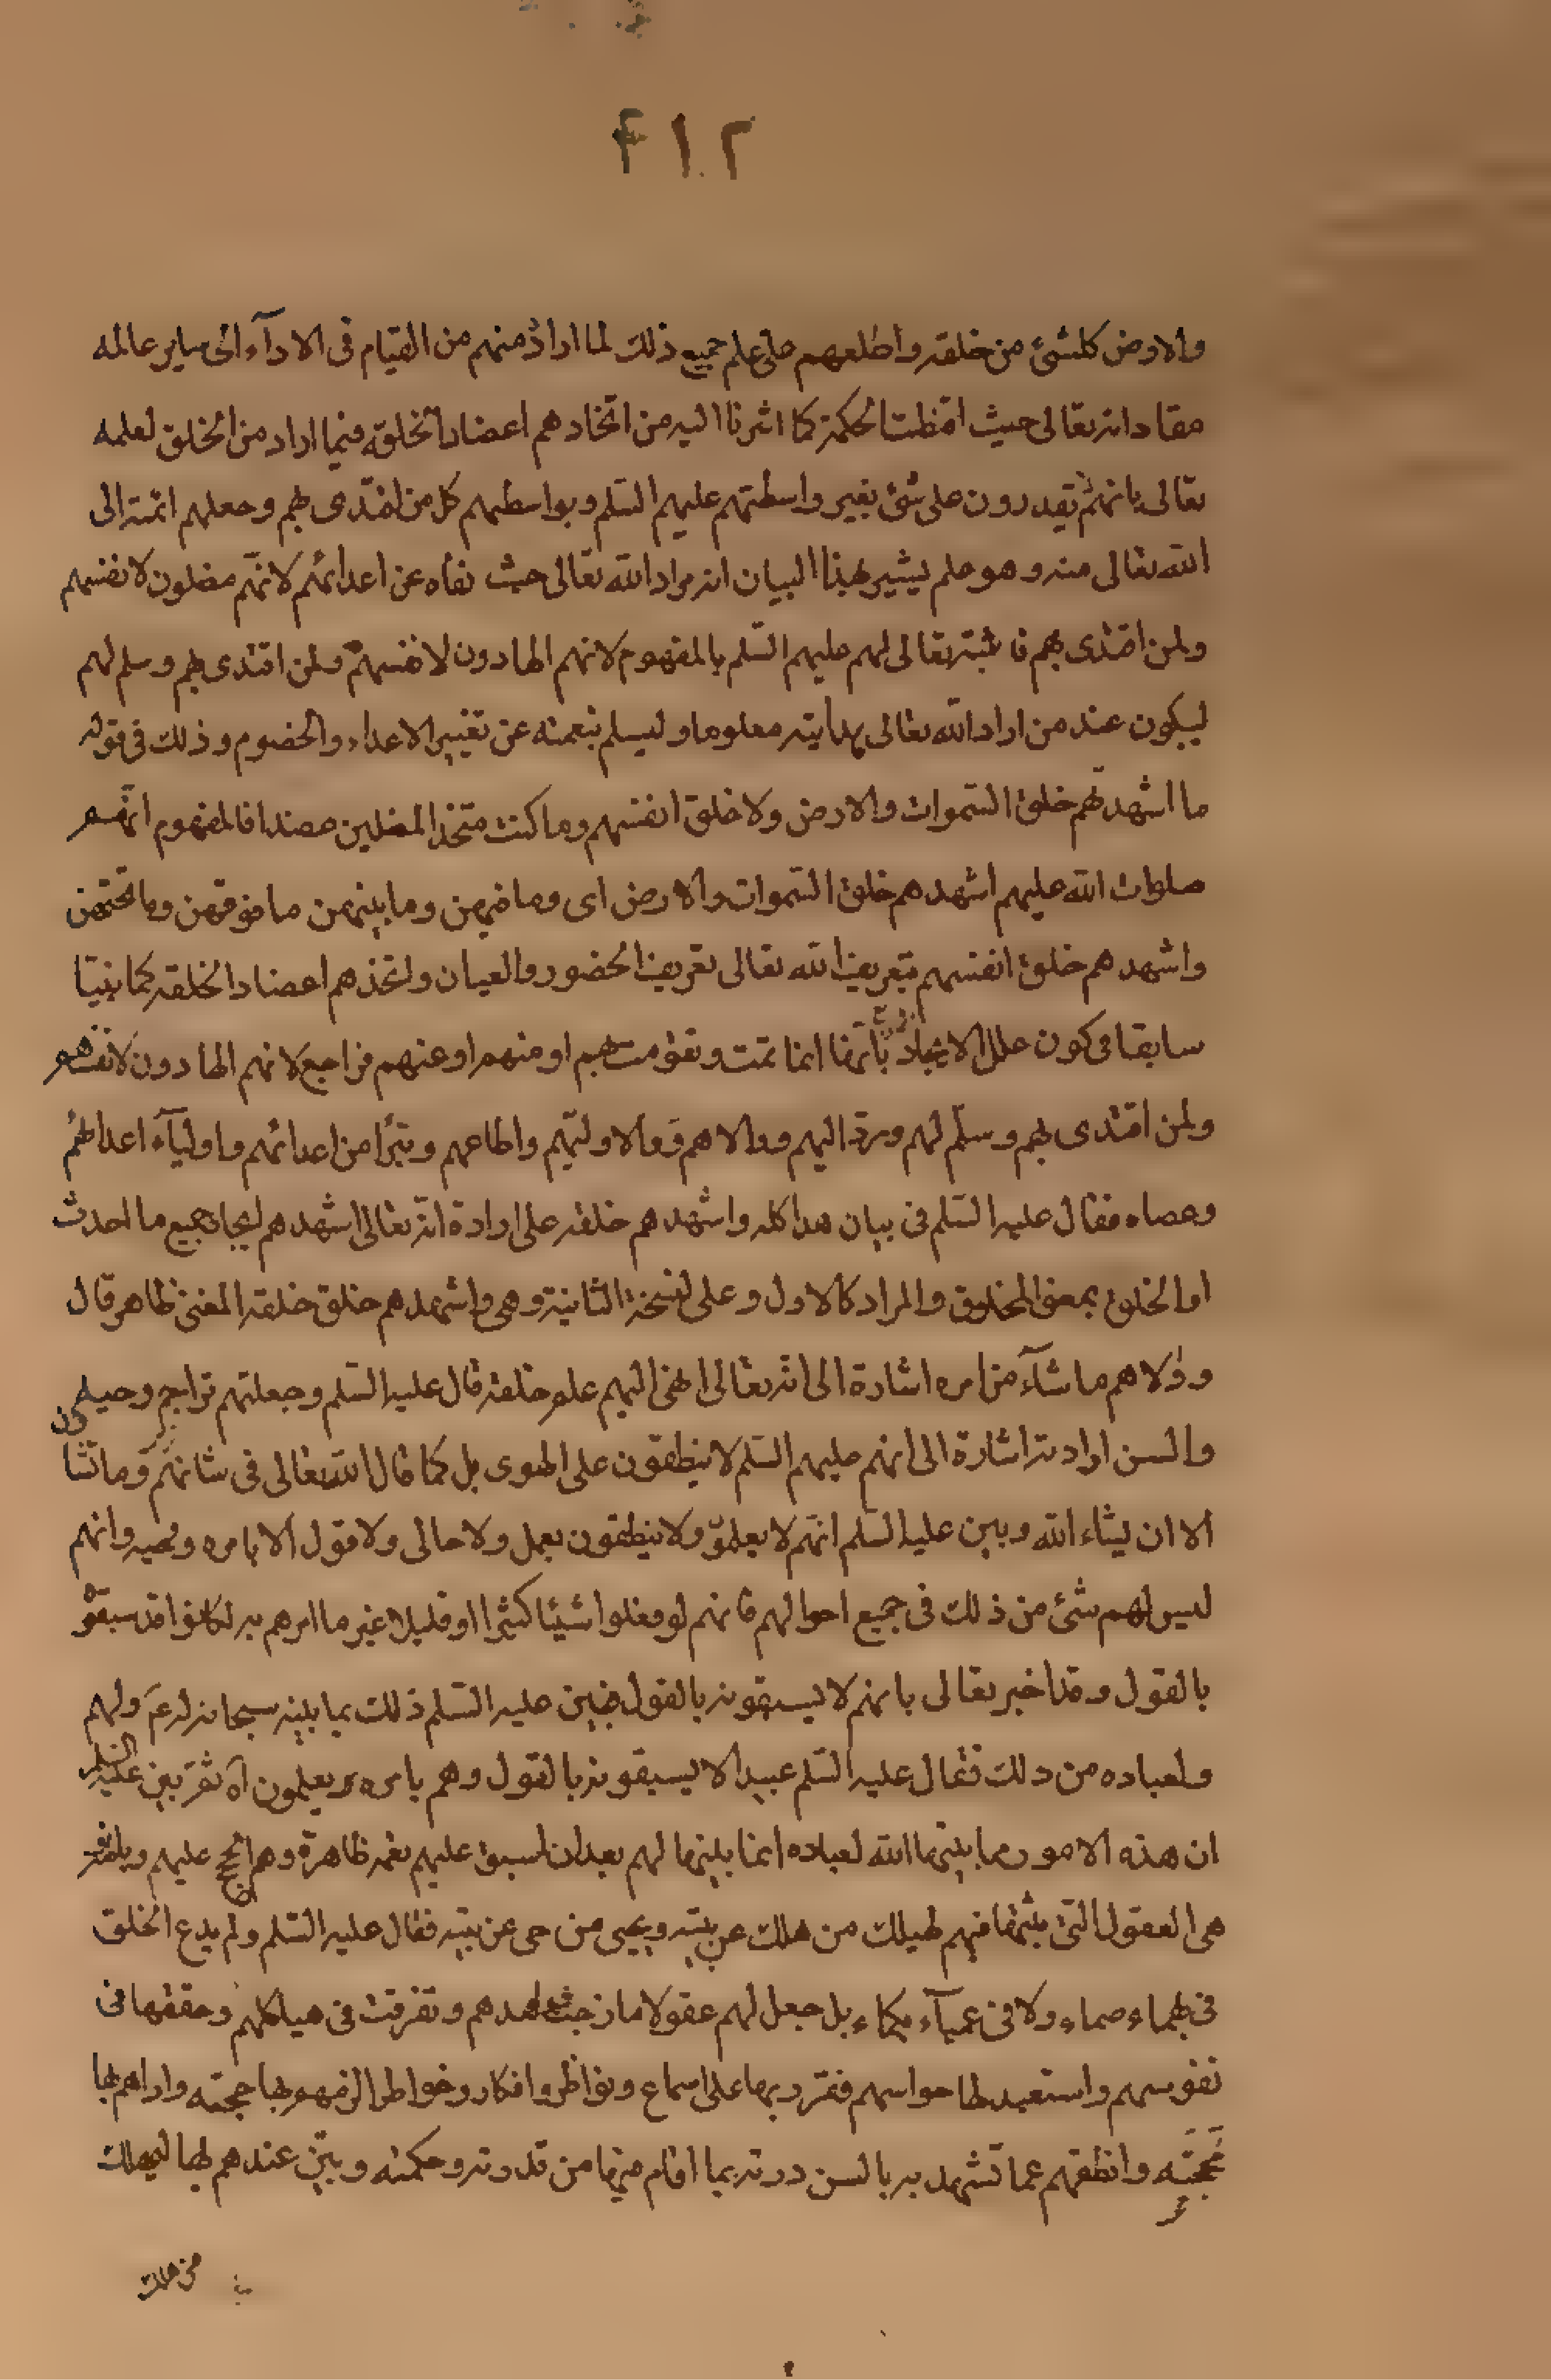 ٢١٤
والارض كلشئ من خلقه واطلعهم على علم جميع ذلك لما اراد منهم من القيام فى الادآء الى ساير عالمه
مقاد انه تعالى حيث اقتظت الحكمة كما اشرنا اليه من اتخاذهم اعضادا لخلقه فيما اراد من الخلق لعلمه
تعالى بانهم يقدرون على شئ بغير واسطتهم عليهم السّلم وبواسطتهم كل من اقتدى بهم وجعلهم ائمته الى
الله تعالى منه وهو علم يشير بهذا البيان انه مراد الله تعالى حيث نفاه عن اعدائهم لانهّم مضلون لانفسهم
ولمن اقتدى بهم فاثبته تعالى لهم عليهم السّلم بالمفهوم لانهم الهادون لانفسهم ولمن اقتدى بهم وسلم لهم
ليكون عند من اراد الله تعالى هدايته معلوما وليسلم بنعمته عن تغيير الاعداء والخصوم وذلك فى قوله
ما اشهدتّهم خلق السّموات والارض ولا خلق انفسهم وما كنت متخذ المضلين عضدا فالمفهوم انهّم
صلوات الله عليهم اشهدهم خلق السّموات والارض اى وما فيهن وما بينهن ما فوقهن وما تحتهن
واشهدهم خلق انفسهم بتعريف الله تعالى تعريف الحضور والعيان واتخذهم اعضادا لخلقه كما بينّا
سابقا فى كون علل الايجاد باتمها انما تمت وتقومت بهم او منهم او عنهم فراجع لانهم الهادون لانفسهم
ولمن اقتدى بهم وسلّم لهم وردّ اليهم ووالاهم ووالا وليّهم واطاعهم وتبرّا من اعدائهم واوليآء اعدائهم
وعصاه فقال عليه السّلم فى بيان هذا كله واشهدهم خلقه على ارادة انه تعالى اشهدهم ايجاد جميع ما احدث
او الخلق بمعنى المخلوق والمراد كالاول وعلى لنسخة الثانية وهى واشهدهم خلق خلقه المعنى ظاهر قال
وولاهم ما شآء من امره اشارة الى انه تعالى انهى اليهم علم خلقه قال عليه السّلم وجعلتهم تراجم وحيه
والسن ارادته اشارة الى انهم عليهم السّلم لا ينطقون على الهوى بل كما قال الله تعالى فى شانهم وما تشاؤن
الا ان يشاء الله وبين عليه السّلم انهّم لا يعلمون ولا ينطقون بعمل ولا حال ولا قول الا بامره ووحيه وانهم
ليس لهم شئ من ذلك فى جميع احوالهم فانهم لو فعلوا شيئا كثيرا او قليلا غير ما امرهم به لكانوا قد سبقوه
بالقول وقد اخبر تعالى بانهم لا يسبقونه بالقول فبين عليه السّلم ذلك بما بينه سبحانه له ع ولهم
ولعباده من ذلك فقال عليه السّلم عبيدا لا يسبقونه بالقول وهم بامره يعملون آه ثم بين عليه السلم
ان هذه الامور مما بينها الله لعباده انما بينها لهم بعد ان اسبق عليهم نعمه ظاهرة وهم الحجج عليهم وباطنة
هى العقول التى بثّها فيهم ليهلك من هلك عن بينه ويحيى من حى عن بينه فقال عليه السّلم ولم يدع الخلق
فى بهماء صماء ولا فى عميآء بكماء بل جعل لهم عقولا مازجت شواهدهم وتفرقت فى هياكلهم وحققها فى
نفوسهم واستعبد لها حواسهم فقرّر بها على اسماع ونواظر وافكار وخواطر الزمهم بها حجته واراهم بها
محجته وانطقهم عما تشهد به بالسن دربه بما اقام فيها من قدرته وحكمته وبيّن عندهم بها ليهلك
من هلك